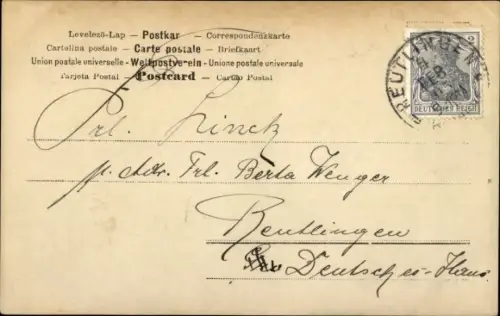 Levelező-Lap — Postkar — Correspondenzkarte
Cartolina postale — Carte postale — Briefkaart
Union postale universelle — Weltpostverein — Unione postale universale
Tarjeta Postal — Postcard — Cartão Postal
2
DEUTSCHES REICH
REUTLINGEN
Frl. Linck
p. Adr. Frl. Berta Wenger
Reutlingen
Deutsches-Haus.